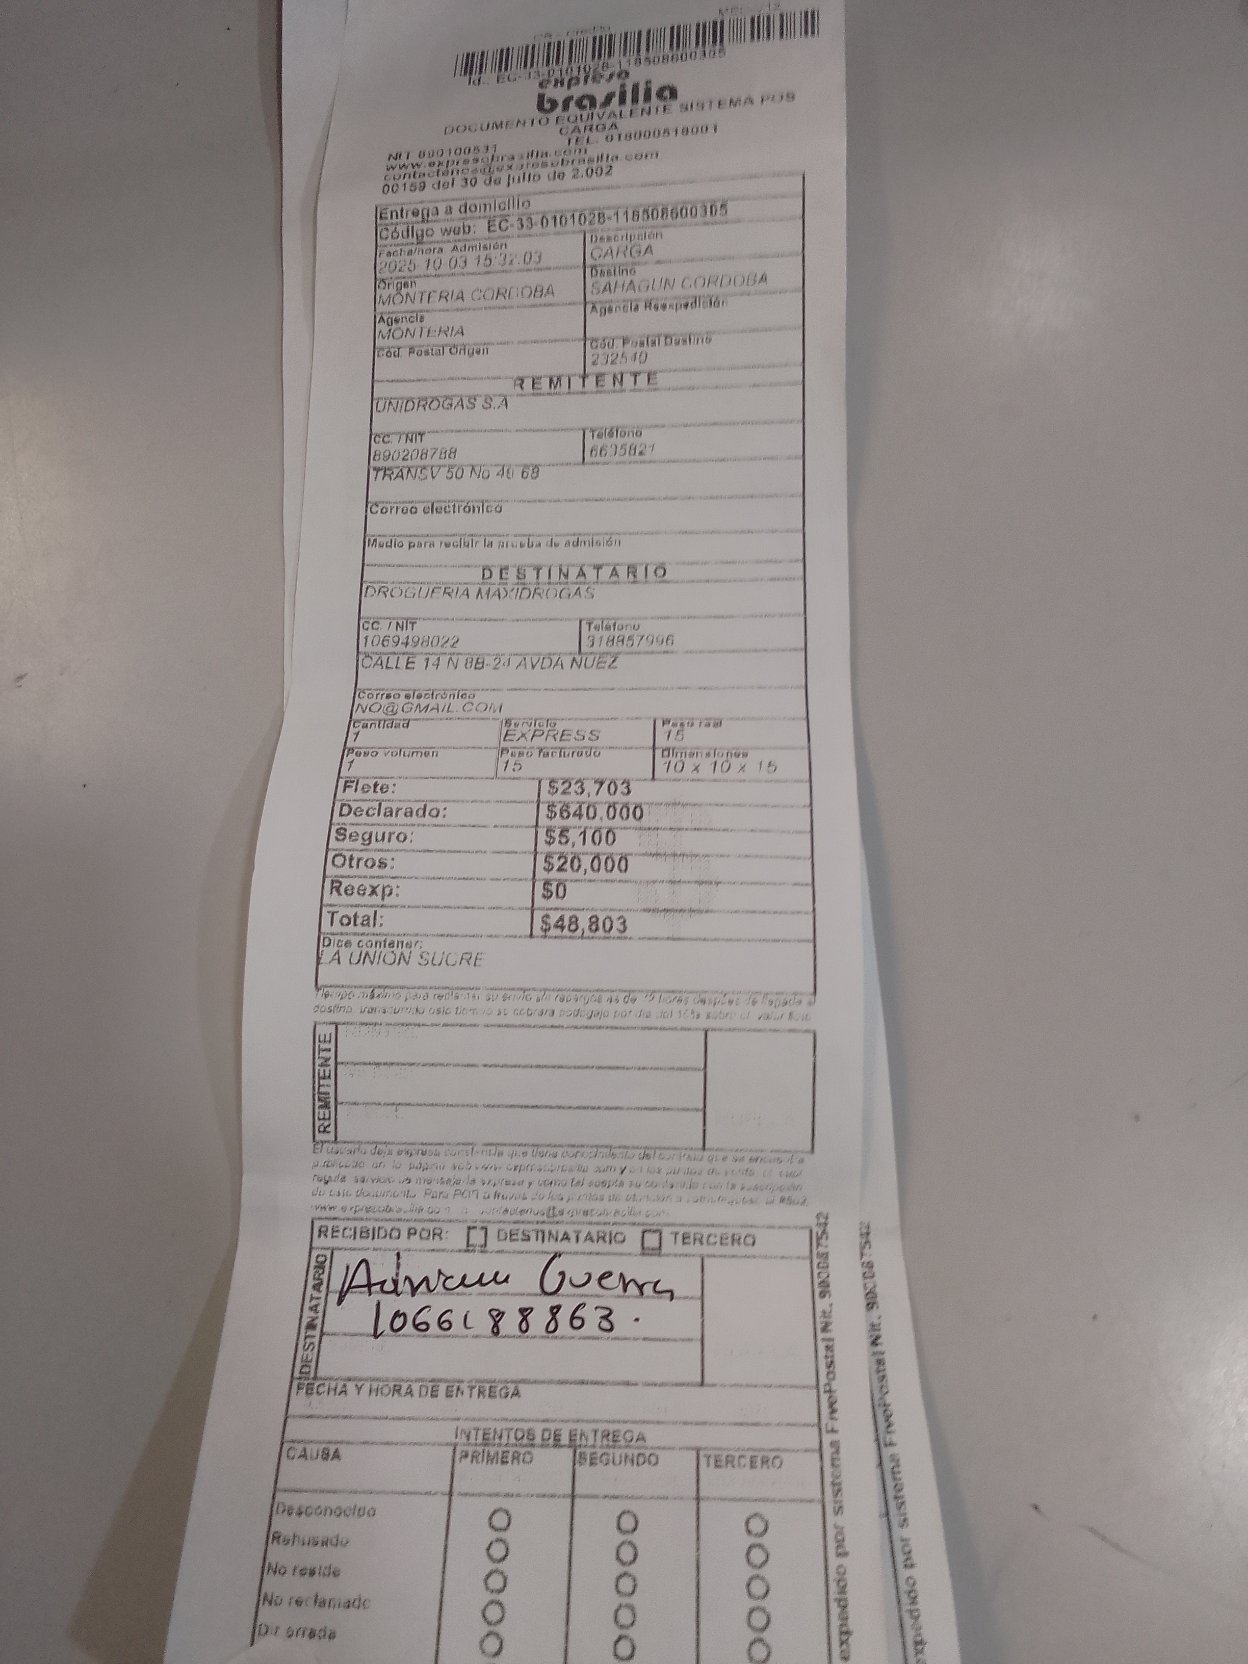 Id.: EC-33-0101028-118508600305
expreso
brasilia
DOCUMENTO EQUIVALENTE SISTEMA POS
CARGA
TEL. 018000518001
NIT 890100531
www.expresobrasilia.com
contactenos@expresobrasilia.com
00159 del 30 de julio de 2.002
Entrega a domicilio
Código web: EC-33-0101028-118508600305
Fecha/hora Admisión
2025-10-03 15:32:03
Descripción
CARGA
Origen
MONTERIA CORDOBA
Destino
SAHAGUN CORDOBA
Agencia
MONTERIA
Agencia Reexpedición
Cód. Postal Origen
Cód. Postal Destino
232540
REMITENTE
UNIDROGAS S.A
CC. / NIT
890208788
Teléfono
6635821
TRANSV 50 No 40 68
Correo electrónico
Medio para recibir la prueba de admisión
DESTINATARIO
DROGUERIA MAXIDROGAS
CC. / NIT
1069498022
Teléfono
318857996
CALLE 14 N 8B-24 AVDA NUEZ
Correo electrónico
NO@GMAIL.COM
Cantidad
1
Servicio
EXPRESS
Peso real
15
Peso volumen
1
Peso facturado
15
Dimensiones
10 x 10 x 15
Flete: $23,703
Declarado: $640,000
Seguro: $5,100
Otros: $20,000
Reexp: $0
Total: $48,803
Dice contener:
LA UNION SUCRE
Tiempo máximo para reclamar su envío sin recargos es de 72 horas después de llegada a
destino, transcurrido este tiempo se cobrara bodegaje por día del 10% sobre el valor flete
REMITENTE
El usuario deja expresa constancia que tiene conocimiento del contrato que se encuentra
publicado en la página web www.expresobrasilia.com y en los puntos de venta, el cual
regula servicio de mensajería expresa y como tal acepta su contenido con la suscripción
de este documento. Para PQR a través de los puntos de atención
RECIBIDO POR: [ ] DESTINATARIO [ ] TERCERO
DESTINATARIO
Adriana Guerra
1066188863.
FECHA Y HORA DE ENTREGA
INTENTOS DE ENTREGA
CAUSA PRIMERO SEGUNDO TERCERO
Desconocido
Rehusado
No reside
No reclamado
Dir errada
expedido por sistema FivePostal Nit. 900087542
expedido por sistema FivePostal Nit. 900087542